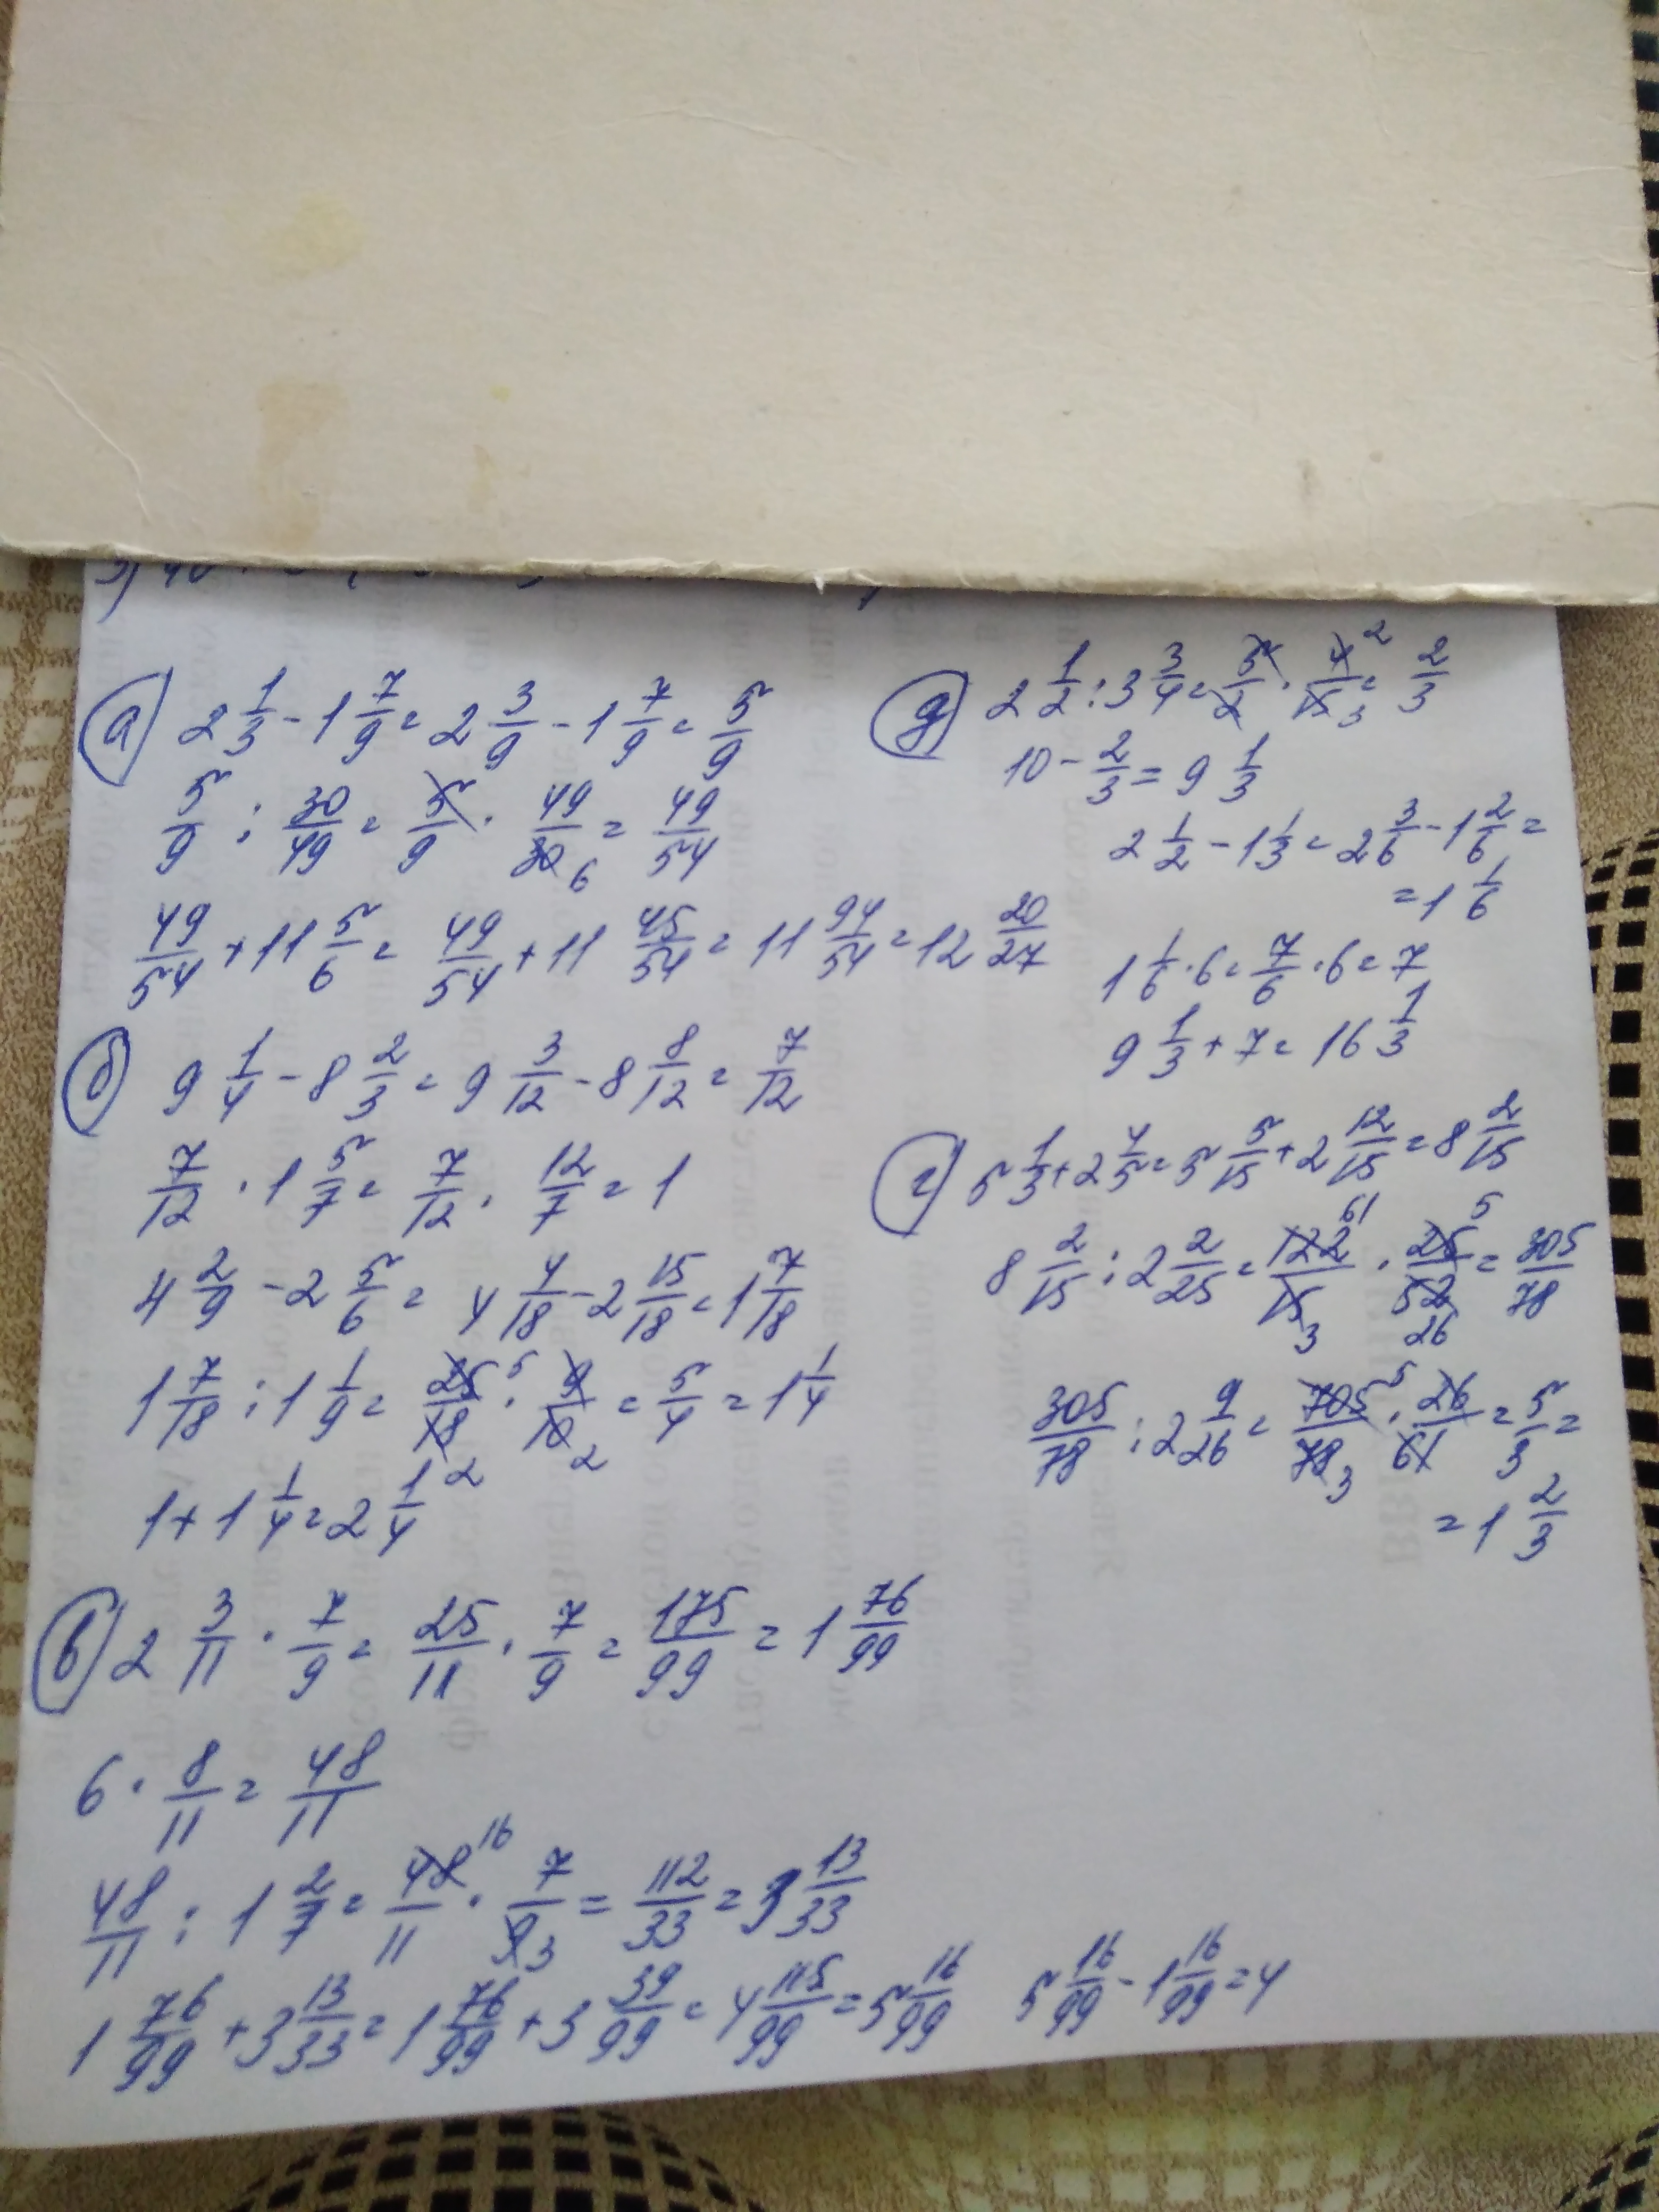 а) 2 1/3 - 1 7/9 = 2 3/9 - 1 7/9 = 5/9
5/9 : 30/49 = 5/9 · 49/30 6 = 49/54
49/54 + 11 5/6 = 49/54 + 11 45/54 = 11 94/54 = 12 20/27
б) 9 1/4 - 8 2/3 = 9 3/12 - 8 8/12 = 7/12
7/12 · 1 5/7 = 7/12 · 12/7 = 1
4 2/9 - 2 5/6 = 4 4/18 - 2 15/18 = 1 7/18
1 7/18 : 1 1/9 = 25 5/18 2 · 9/10 2 = 5/4 = 1 1/4
1 + 1 1/4 = 2 1/4
в) 2 3/11 · 7/9 = 25/11 · 7/9 = 175/99 = 1 76/99
6 · 8/11 = 48/11
48/11 : 1 2/7 = 48 16/11 · 7/9 3 = 112/33 = 3 13/33
1 76/99 + 3 13/33 = 1 76/99 + 3 39/99 = 4 115/99 = 5 16/99 5 16/99 - 1 16/99 = 4
д) 2 1/2 : 3 3/4 = 5/2 · 4 2/15 3 = 2/3
10 - 2/3 = 9 1/3
2 1/2 - 1 1/3 = 2 3/6 - 1 2/6 =
= 1 1/6
1 1/6 · 6 = 7/6 · 6 = 7
9 1/3 + 7 = 16 1/3
г) 5 1/3 + 2 4/5 = 5 5/15 + 2 12/15 = 8 2/15
8 2/15 : 2 2/25 = 122 61/15 3 · 25 5/52 26 = 305/78
305/78 : 2 9/26 = 305 5/78 3 · 26/61 = 5/3 =
= 1 2/3